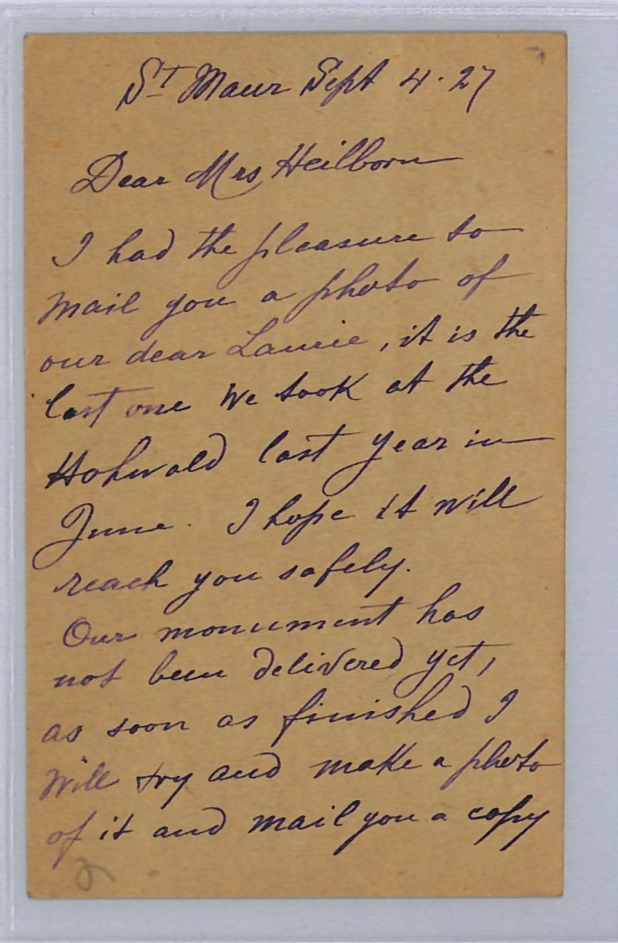 St Maur Sept 4.27
Dear Mrs Heilborn
I had the pleasure to
mail you a photo of
our dear Laurie, it is the
last one we took at the
Hohwald last year in
June. I hope it will
reach you safely.
Our monument has
not been delivered yet,
as soon as finished I
will try and make a photo
of it and mail you a copy